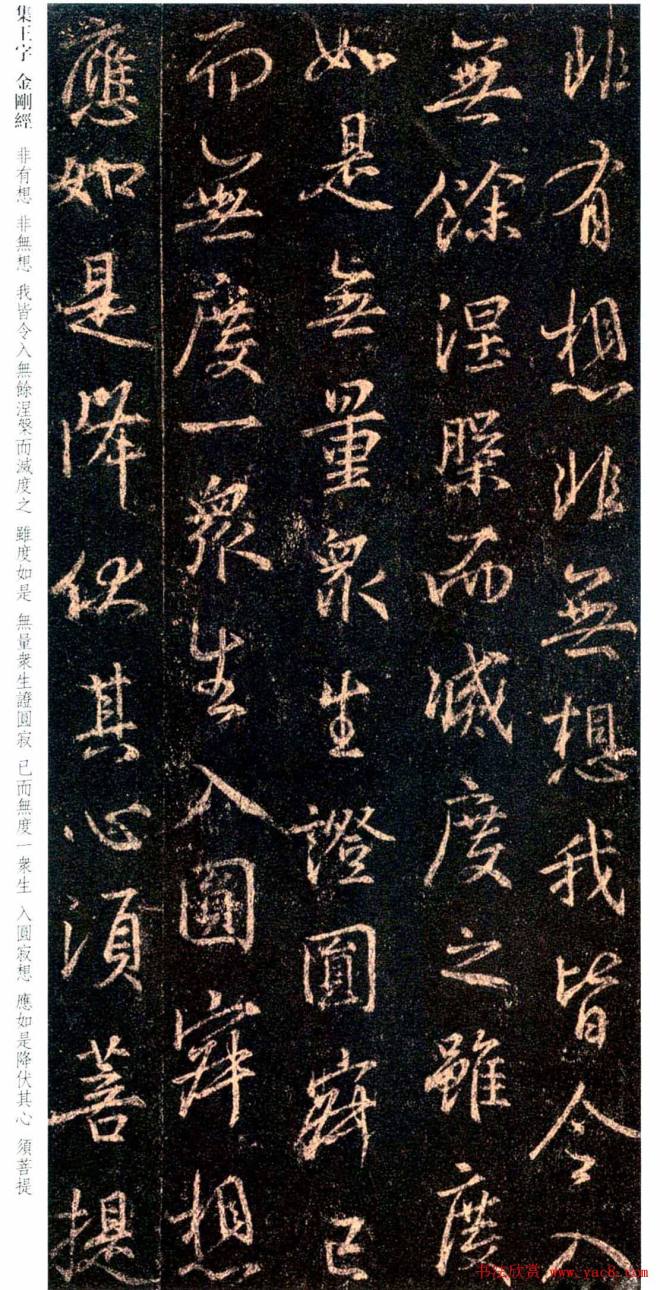 非有想非無想我皆令入
無餘涅槃而滅度之雖度
如是無量衆生證圓寂已
而無度一衆生入圓寂想
應如是降伏其心須菩提
集王字 金剛經 非有想 非無想 我皆令入無餘涅槃而滅度之 雖度如是 無量衆生證圓寂 已而無度一衆生 入圓寂想 應如是降伏其心 須菩提
书法欣赏 www.yac8.com